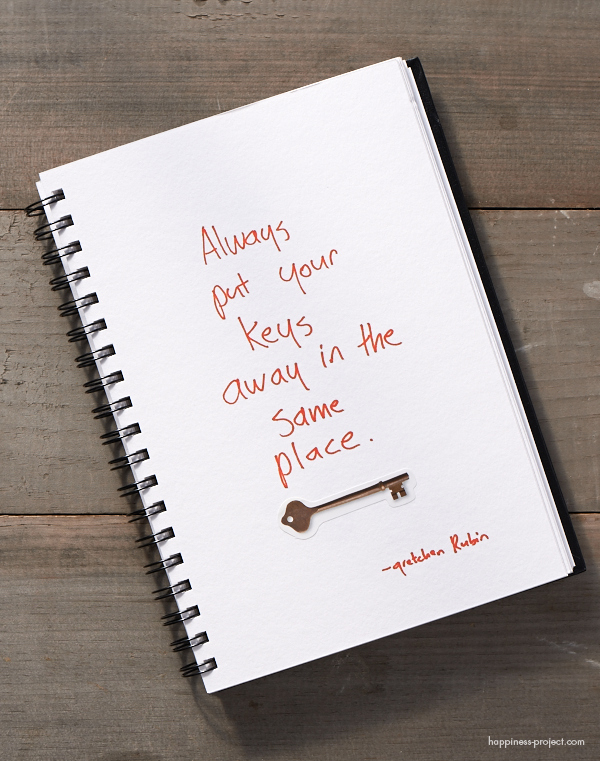 Always
put your
keys
away in the
same
place.
-gretchen Rubin
happiness-project.com